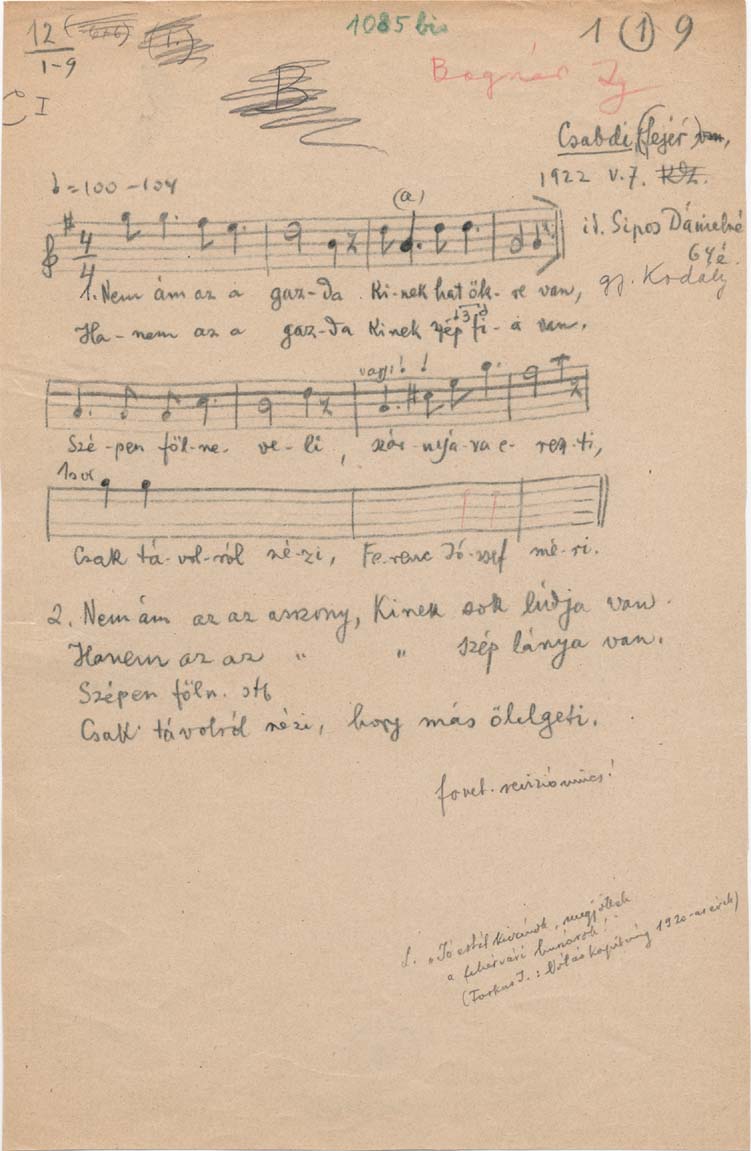 12
1-9
1085 bis
1 (1) 9
C I
B
Bognár Ig
Csabdi, (Fejér) vm,
1922 V. 7.
♩=100-104
(a)
4/4
id. Sipos Dánielné
64 é.
gy. Kodály
1. Nem ám az a gaz-da Ki-nek hat ök-re van,
3
Ha-nem az a gazda Kinek szép fi-a van.
vagy! !
Szé-pen föl-ne-ve-li, szár-nyá-va e-resz-ti,
1 sor
Csak tá-vol-ról né-zi, Fe-renc Jó-zsef mé-ri.
2. Nem ám az az asszony, Kinek sok lúdja van.
Hanem az az " " szép lánya van.
Szépen föln. stb
Csak távolról nézi, hogy más ölelgeti.
fonet. revizió nincs!
l. "Jó estét kivánok, megjöttek
a fehérvári huszárok!"
(Farkas I.: Vólás kapitány 1920-as évek)